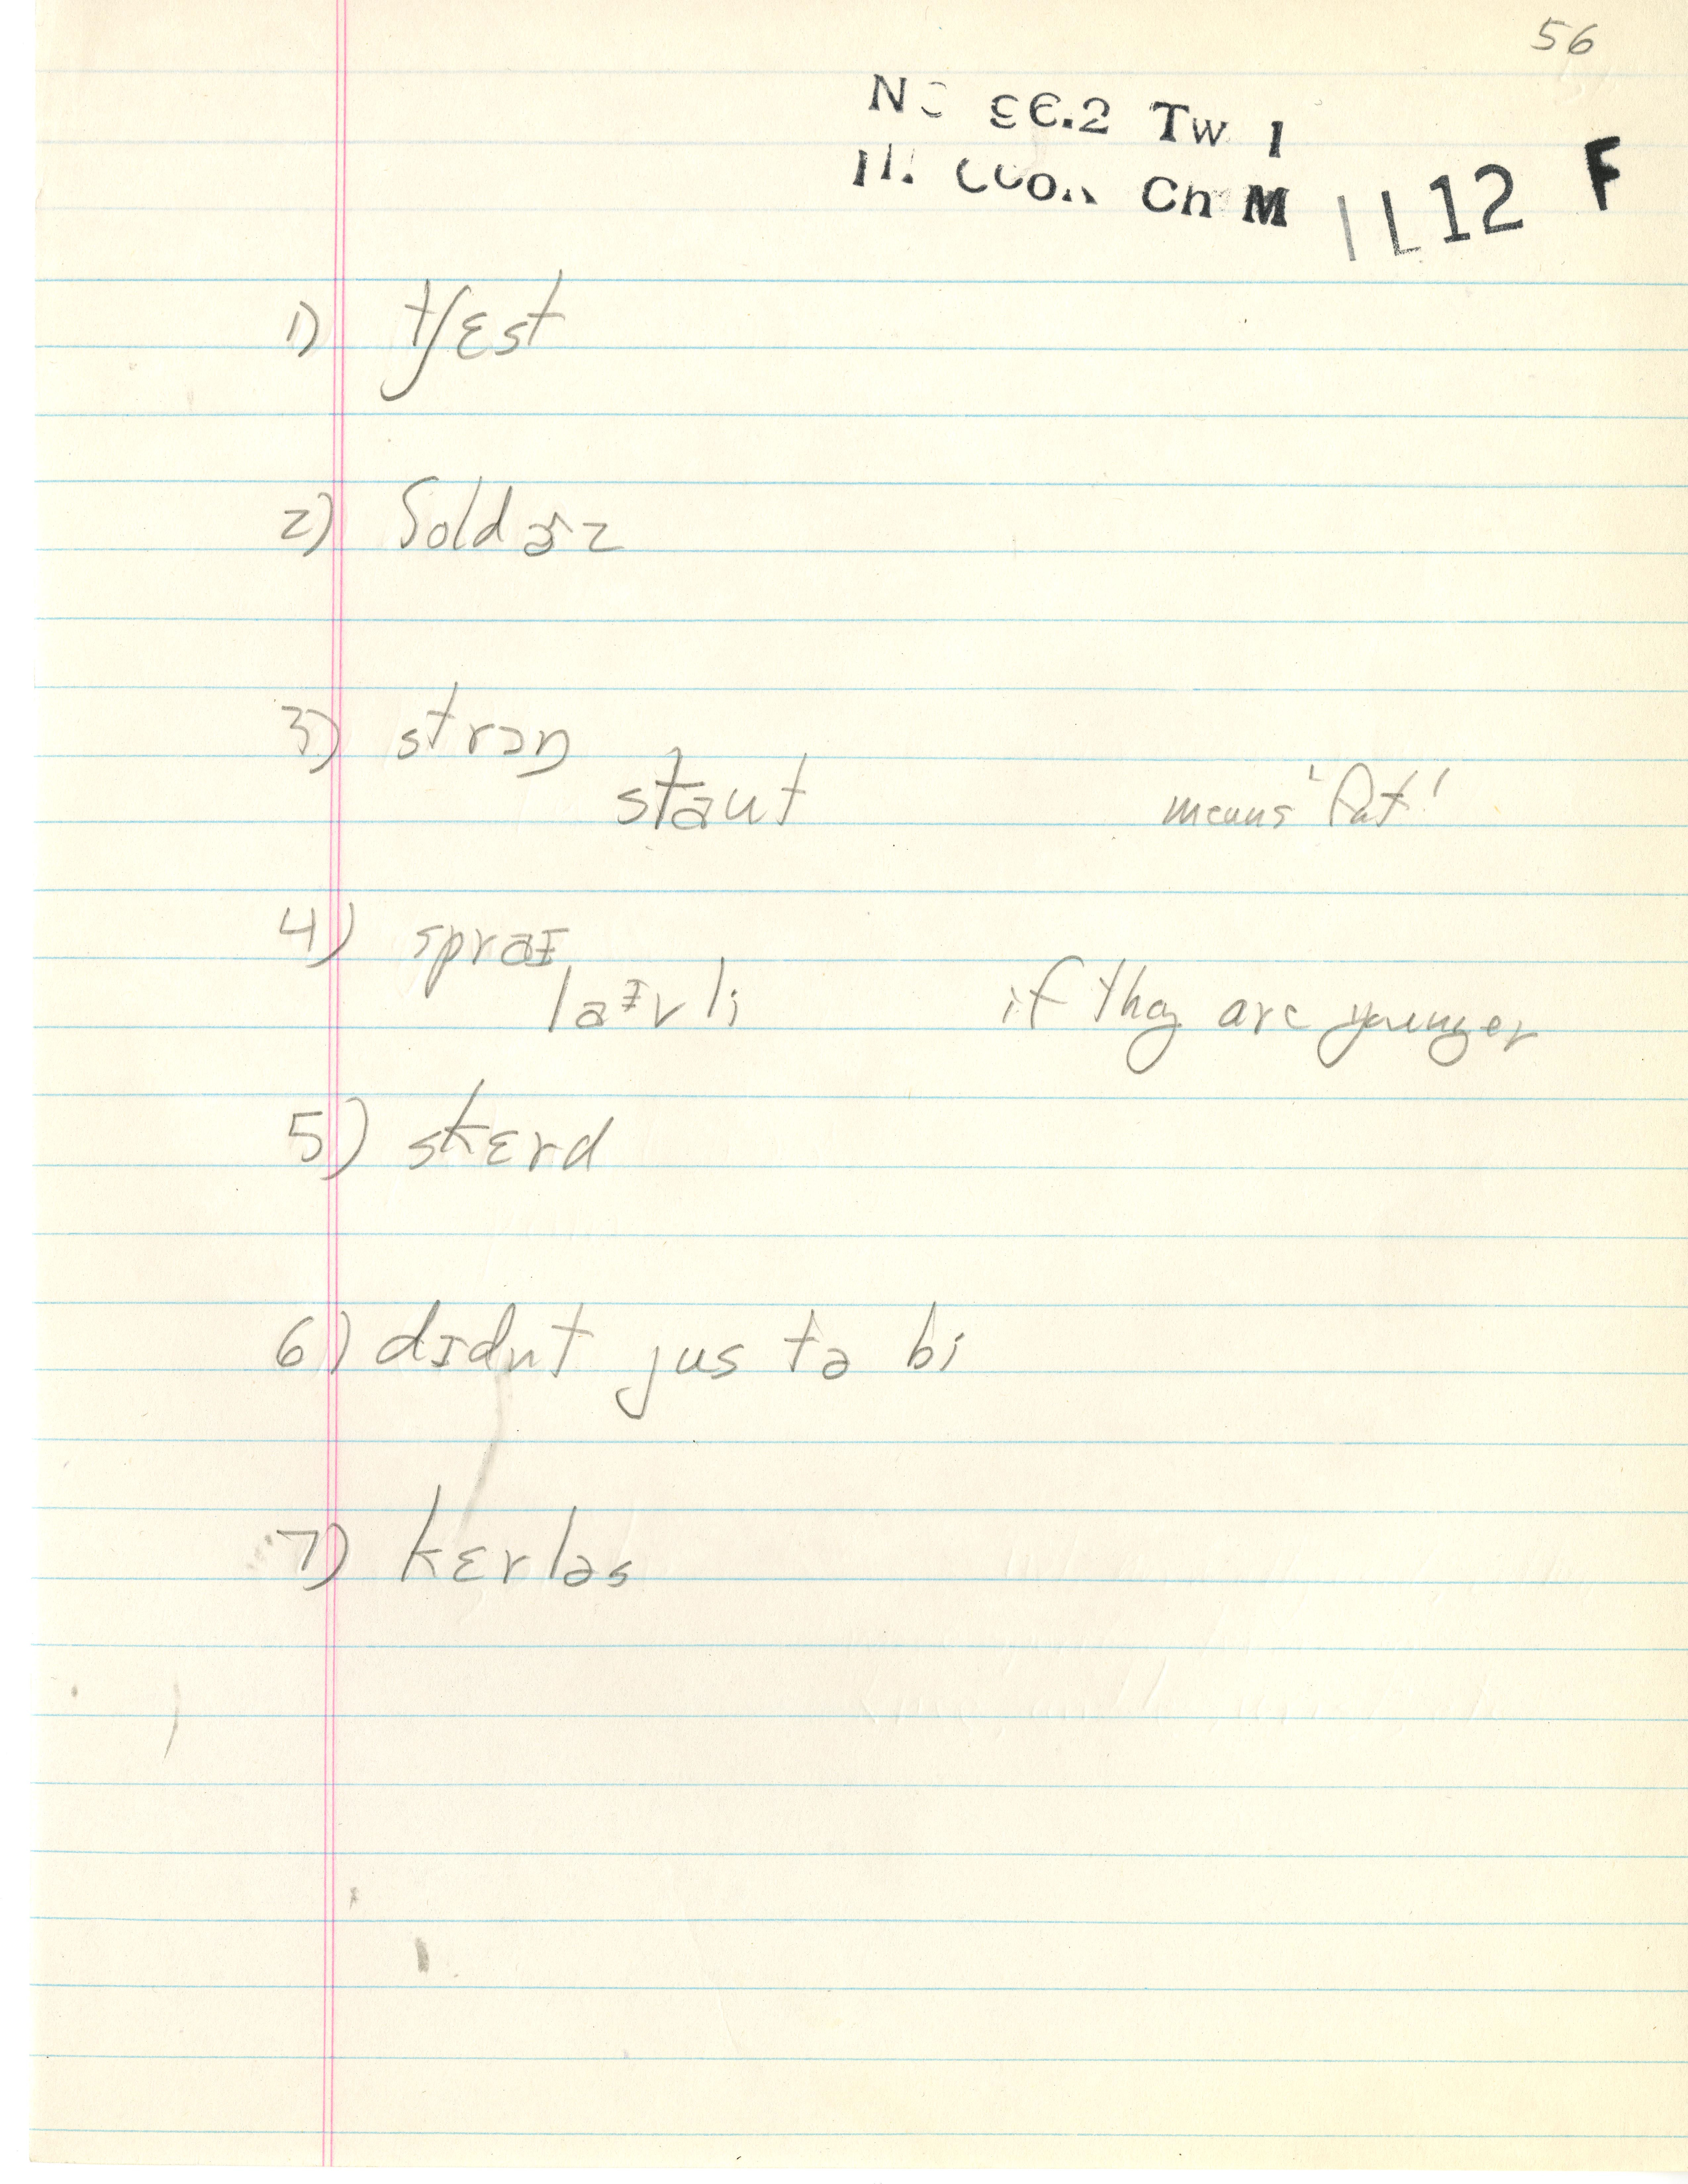 56
Tw 1
Ch M 1L12 F
1) tʃɛst
2) ʃoldɚz
3) strɔŋ
staut means 'fat'
4) spraɪ
laɪvli if they are younger
5) skɛrd
6) dɪdnt jus tə bi
7) kɛrləs